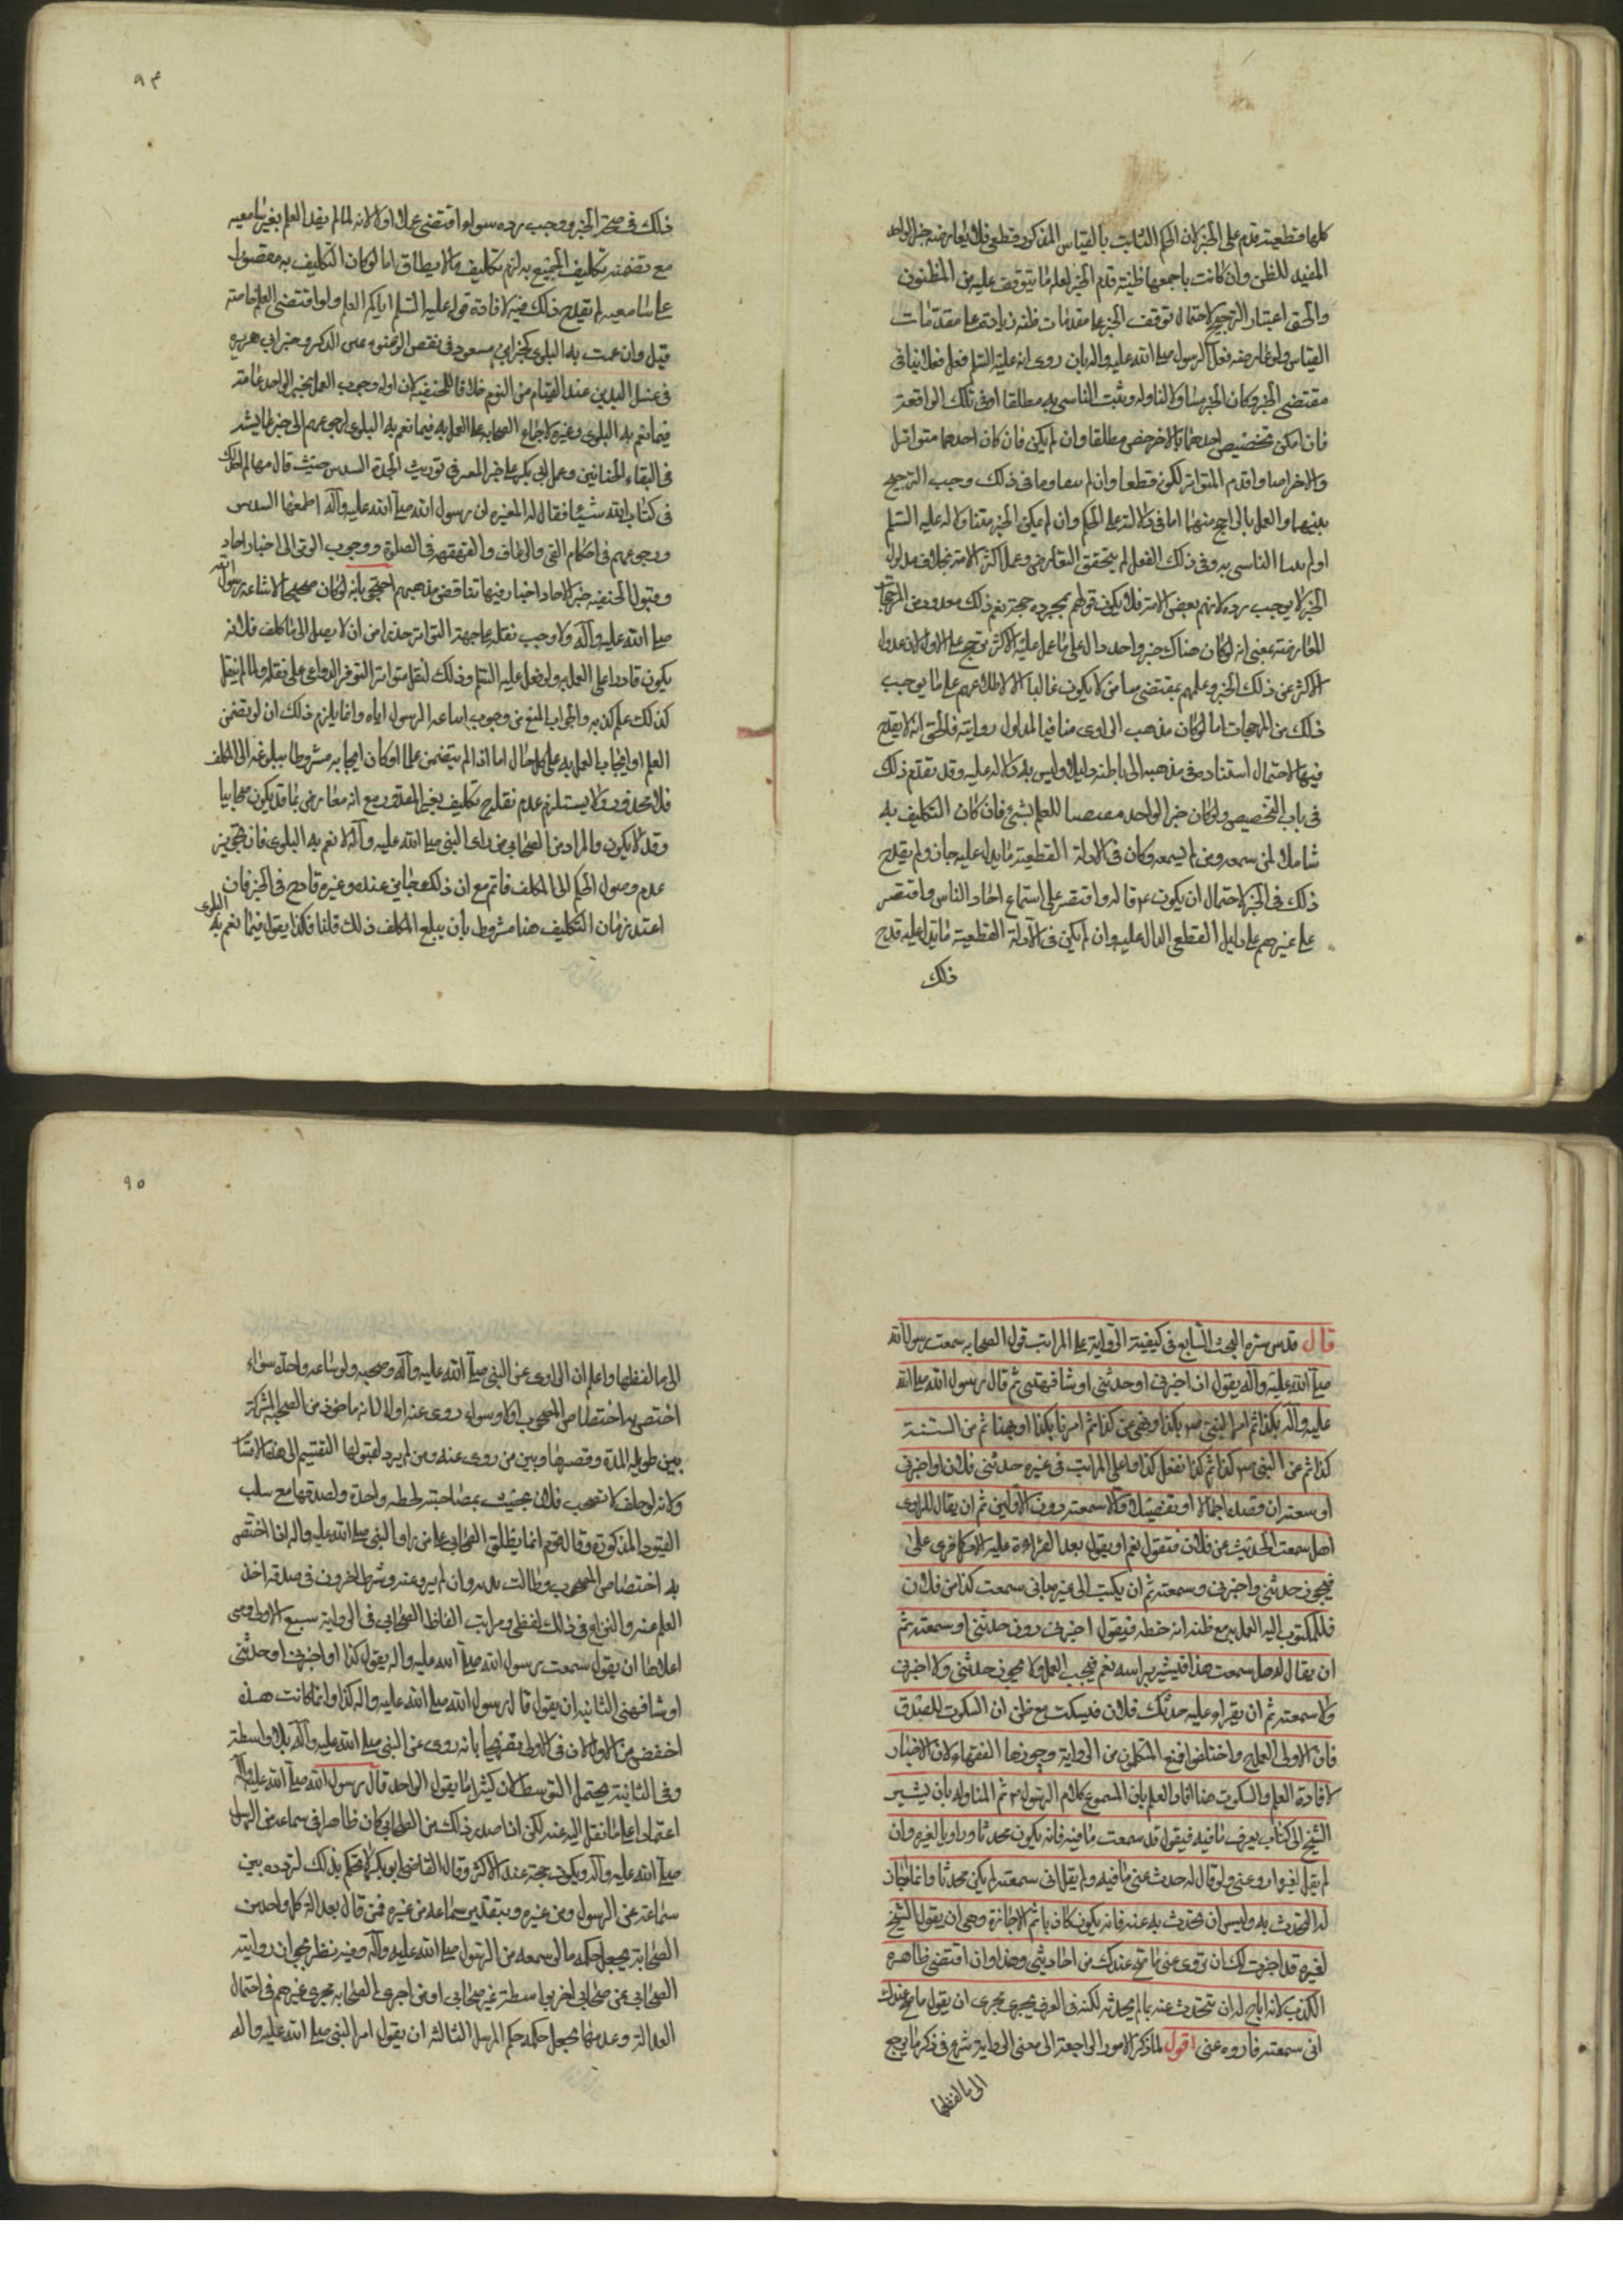 كلها قطعية قدم على الخبر لان الحكم الثابت بالقياس المذكور قطعى فلا يعارضه خبر الواحد
المفيد للظن وان كانت باجمعها ظنية قدم الخبر لقلة ما يتوقف عليه من المظنون
والحق اعتبار الترجيح لاحتمال توقف الخبر على مقدمات ظنية زيادة على مقدمات
القياس ولو عارضه فعل الرسول صلى الله عليه واله بان روى انه عليه السلم فعل فعلا ينافى
مقتضى الخبر وكان الخبر متناولا له وثبت التاسى به مطلقا او فى تلك الواقعة
فان امكن تخصيص احدهما بالاخر خص مطلقا وان لم يكن فان كان احدهما متواترا
والاخر احادا قدم المتواتر لكونه قطعيا وان لم وما فى ذلك وجب الترجيح
بينهما والعمل بالراجح منهما اما فى دلالته على الحكم وان لم يكن الخبر متناولا له عليه السلم
او لم التاسى به وفى ذلك الفعل لم يتحقق التعارض وعمل اكثر الامة بخلاف مدلول
الخبر لا يوجب رده لانهم بعض الامة فلا يكون قولهم بمجرده حجة نعم ذلك معدود من المرجحات
المعارضة بمعنى انه لو كان هناك خبر واحد دال على ما عمل عليه الاكثر ترجح على الاول لان عدول
الاكثر عن ذلك الخبر وعلمهم بمقتضى لا يكون غالبا الا لاطلاعهم على ما يوجب
ذلك من المرجحات اما لو كان مذهب الراوى منافيا لمدلول روايته فالحق انه لا يقدح
فيها لاحتمال استناده فى مذهبه الى ما ظنه دليلا وليس به دلالة عليه وقد تقدم ذلك
فى باب التخصيص ولو كان خبر الواحد للعلم بشئ فان كان التكليف به
شاملا لمن سمعه ومن لم يسمعه وكان فى الادلة القطعية ما يدل عليه جاز ولم يقدح
ذلك فى الخبر لاحتمال ان يكون ع قاله واقتصر على استماع احاد الناس واقتصر
على غيرهم على دليل القطعى الدال عليه وان لم يكن فى الادلة القطعية ما يدل عليه قدح
ذلك
٩٤
ذلك فى صحة الخبر ووجب رده سواء اقتضى عملا او لا لانه لما لم يفد العلم بغير سامعيه
مع تضمنه تكليف الجميع به لزم تكليف ما لا يطاق اما لو كان التكليف به مقصورا
على سامعيه لم يقدح ذلك فيه لافادة قوله عليه السلم اياكم العلم ولو اقتضى العلم خاصة
قبل وان عمت به البلوى كخبر ابن مسعود فى نقض الوضوء بمس الذكر وخبر ابى هريره
فى غسل اليدين عند القيام من النوم خلافا للحنفية لان ادلة وجوب العمل بخبر الواحد عامة
فيما تعم به البلوى وغيره لاجماع الصحابة على العمل به فيما تعم به البلوى لرجوعهم الى خبر عايشه
فى التقاء الختانين وعمل ابى بكر على خبر المغيرة فى توريث الجدة السدس حيث قال مها لم اجد لك
فى كتاب الله شيئا فقال له المغيره ان رسول الله صلى الله عليه وآله اطعمها السدس
ورجوعهم فى احكام القئ والرعاف والقهقهة فى الصلوة ووجوب الوتر الى اخبار احاد
وقبول الحنفية خبر الاحاد اخبار فيها تناقض مذهبهم احتج بانه لو كان صحيحا لاشاعه رسول الله
صلى الله عليه وآله ولاوجب نقله على جهة التواتر حذرا من ان لا يصل الى من كلف فلا
يكون قادرا على العمل به ولو فعل عليه السلم ذلك لنقل متواترا لتوفر الدواعى على نقله ولما لم ينقل
كذلك علم كذبه والجواب المنع من وجوب اشاعة الرسول اياه وانما يلزم ذلك ان لو تضمن
العلم او ايجاب العمل به على كل حال اما اذا لم يتضمن علما او كان ايجابه مشروطا ببلوغه الى المكلف
فلا محذور ولا يستلزم عدم تكليف بغير المقدور مع انه معارض بما قد يكون صحابيا
وقد لا يكون والمراد من الصحابى من راى النبى صلى الله عليه وآله لا تعم به البلوى فان تجويز
عدم وصول الحكم الى المكلف قائم مع ان ذلك جائز عنده وغيره قادح فى الخبر فان
اعتذر بان التكليف هنا مشروط بان يبلغ المكلف ذلك قلنا فكذا يقول فيما تعم به البلوى
قال قدس سره البحث السابع فى كيفية الرواية على المراتب قول الصحابى سمعت رسول الله
صلى الله عليه وآله يقول او اخبرنى او حدثنى او شافهنى ثم قال رسول الله صلى الله
عليه وآله بكذا ثم امر النبى ص بكذا او نهى عن كذا ثم امرنا بكذا او نهينا ثم من السنة
كذا ثم عن النبى ص كذا ثم كنا نفعل كذا واعلى المراتب فى غيره حدثنى فلان او اخبرنى
او سمعته ان قصده اجمالا او تفصيلا والا سمعته دون الاولين ثم ان يقال للراوى
هل سمعت الحديث عن فلان فيقول نعم او يقول بعد القراءة عليه الامر كما قرى على
فيجوز حدثنى واخبرنى وسمعته ثم ان يكتب الى غيره بانى سمعت كذا من فلان
فللمكتوب اليه العمل به مع ظنه انه خطه فيقول اخبرنى دون حدثنى او سمعته ثم
ان يقال له هل سمعت هذا فيشير براسه نعم فيجب العمل ولا يجوز حدثنى ولا اخبرنى
ولا سمعته ثم ان يقراء عليه حدثك فلان فيسكت مع ظن ان السكوت للصدق
فان الاولى العمل به واختلفوا فمنع المتكلمون من الرواية وجوزها الفقهاء لان الاخبار
لافادة العلم والسكوت هنا افاد العلم بان المسموع كلام الرسول ص ثم المناولة بان يشير
الشيخ الى كتاب يعرف ما فيه فيقول قد سمعت ما فيه فانه يكون محدثا وراويا لغيره وان
لم يقل لغيره اروه عنى ولو قال له حدث عنى ما فيه ولم يقل انى سمعته لم يكن محدثا وانما اجاز
له التحدث به وليس ان يحدث به عنه فانه يكون كاذبا ثم الاجازة وهى ان يقول الشيخ
لغيره قد اجزت لك ان تروى عنى ما صح عندك من احاديثى وهذا وان اقتضى ظاهره
الكذب لانه اباح له ان يتحدث عنه بما لم يحدثه لكنه فى العرف يجرى مجرى ان يقول ما صح عندك
انى سمعته فاروه عنى اقول لما ذكر الامور الراجعة الى معنى الرواية شرع فى ذكر ما يرجع
الى الفظها
٩٥
الى الفظها واعلم ان الراوى عن النبى صلى الله عليه وآله وصحبه ولو ساعة واحدة سواء
اختص به اختصاص المصحوب او لا وسواء روى عنه او لا لانه ماخوذ من الصحبة المشتركة
بين طويلة المدة وقصيرها وبين من روى عنه ومن لم يرو لقبولها التقسيم الى هذه الاقسام
ولانه لو حلف لا تصحب فلانا بمصاحبته لحظة واحدة ولصدقها مع سلب
القيود المذكورة وقال قوم انما يطلق الصحابى على من راى النبى صلى الله عليه واله اذا اختص
به اختصاص المصحوب وطالت مدته وان لم يرو عنه وشرط اخرون فى صدقه اخذ
العلم عنه والنزاع فى ذلك لفظى ومراتب الفاظ الصحابى فى الرواية سبع الاولى وهى
اعلاها ان يقول سمعت رسول الله صلى الله عليه واله يقول كذا او اخبرنى او حدثنى
او شافهنى الثانية ان يقول قال رسول الله صلى الله عليه واله كذا وانما كانت هذه
اخفض من الاولى لان فى الاولى تصريحا بانه روى عن النبى صلى الله عليه وآله بلا واسطة
وفى الثانية يحتمل التوسط لان كثيرا ما يقول الواحد قال رسول الله صلى الله عليه وآله
اعتمادا على ما نقل اليه عنه لكن اذا صدر ذلك من الصحابى كان ظاهرا فى سماعه من الرسول
صلى الله عليه وآله ويكون حجة عند الاكثر وقال القاضى ابو بكر لا نحكم بذلك لتردده بين
سماعه عن الرسول ومن غيره وبتقدير سماعه من غيره فمن قال بعدالة كل واحد من
الصحابة يجعل حكمه ما لو سمعه من الرسول صلى الله عليه وآله وفيه نظر لجواز رواية
الصحابى عن صحابى اخر بواسطة غير صحابى او من اجرى الصحابة مجرى غيرهم فى احتمال
العدالة وعدمها يجعل حكمه حكم المرسل الثالثة ان يقول امر النبى صلى الله عليه واله